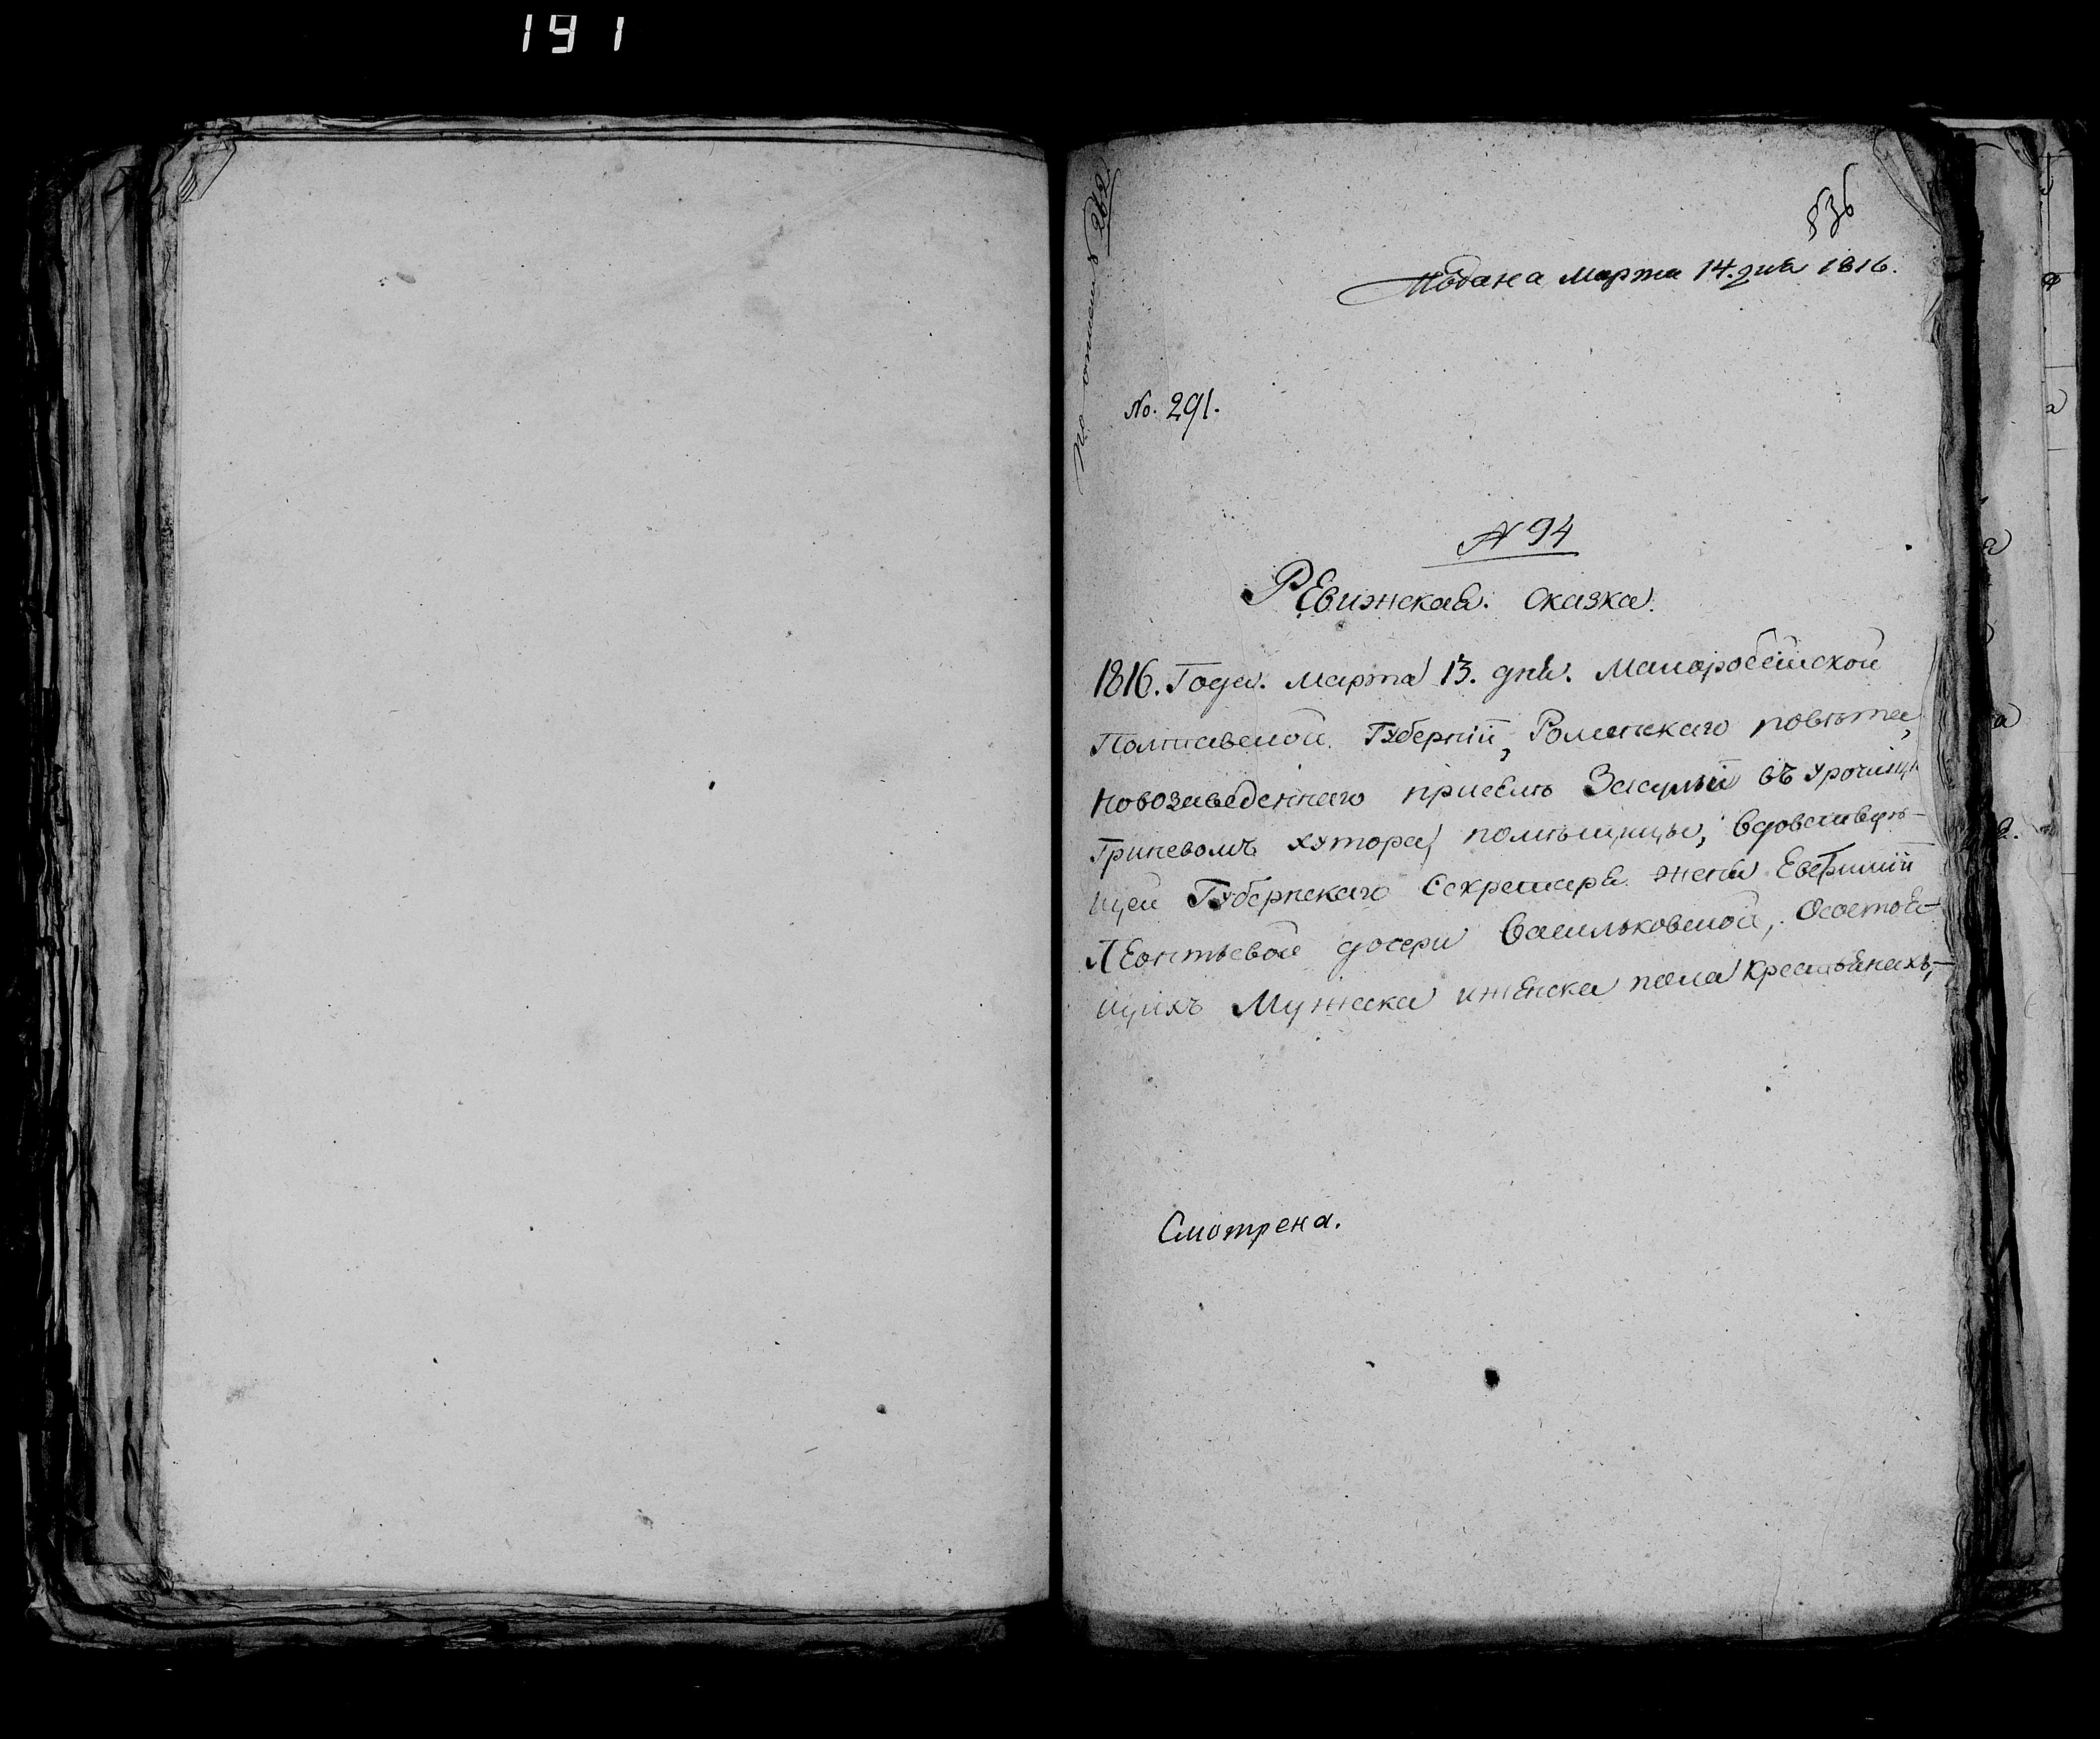 191
836
Подана марта 14. дня 1816.
по описи 8 262
No. 291.
N 94
РЕвижская. сказка.
1816. Года. марта 13. дня. Малоросейской
Полтавской. Губернiй, Роменскаго повѣта,
новозаведеннаго приселѣ Засулья въ урочищѣ
Гриневомъ хутора, помѣщицы, вдовствую-
щей Губернскаго Секретаря жены Евфимiи
ЛЕонтьевой дочери Васильковской, Осостоя-
щихъ Мужеска иженска пола крестьянахъ,
Смотрена.